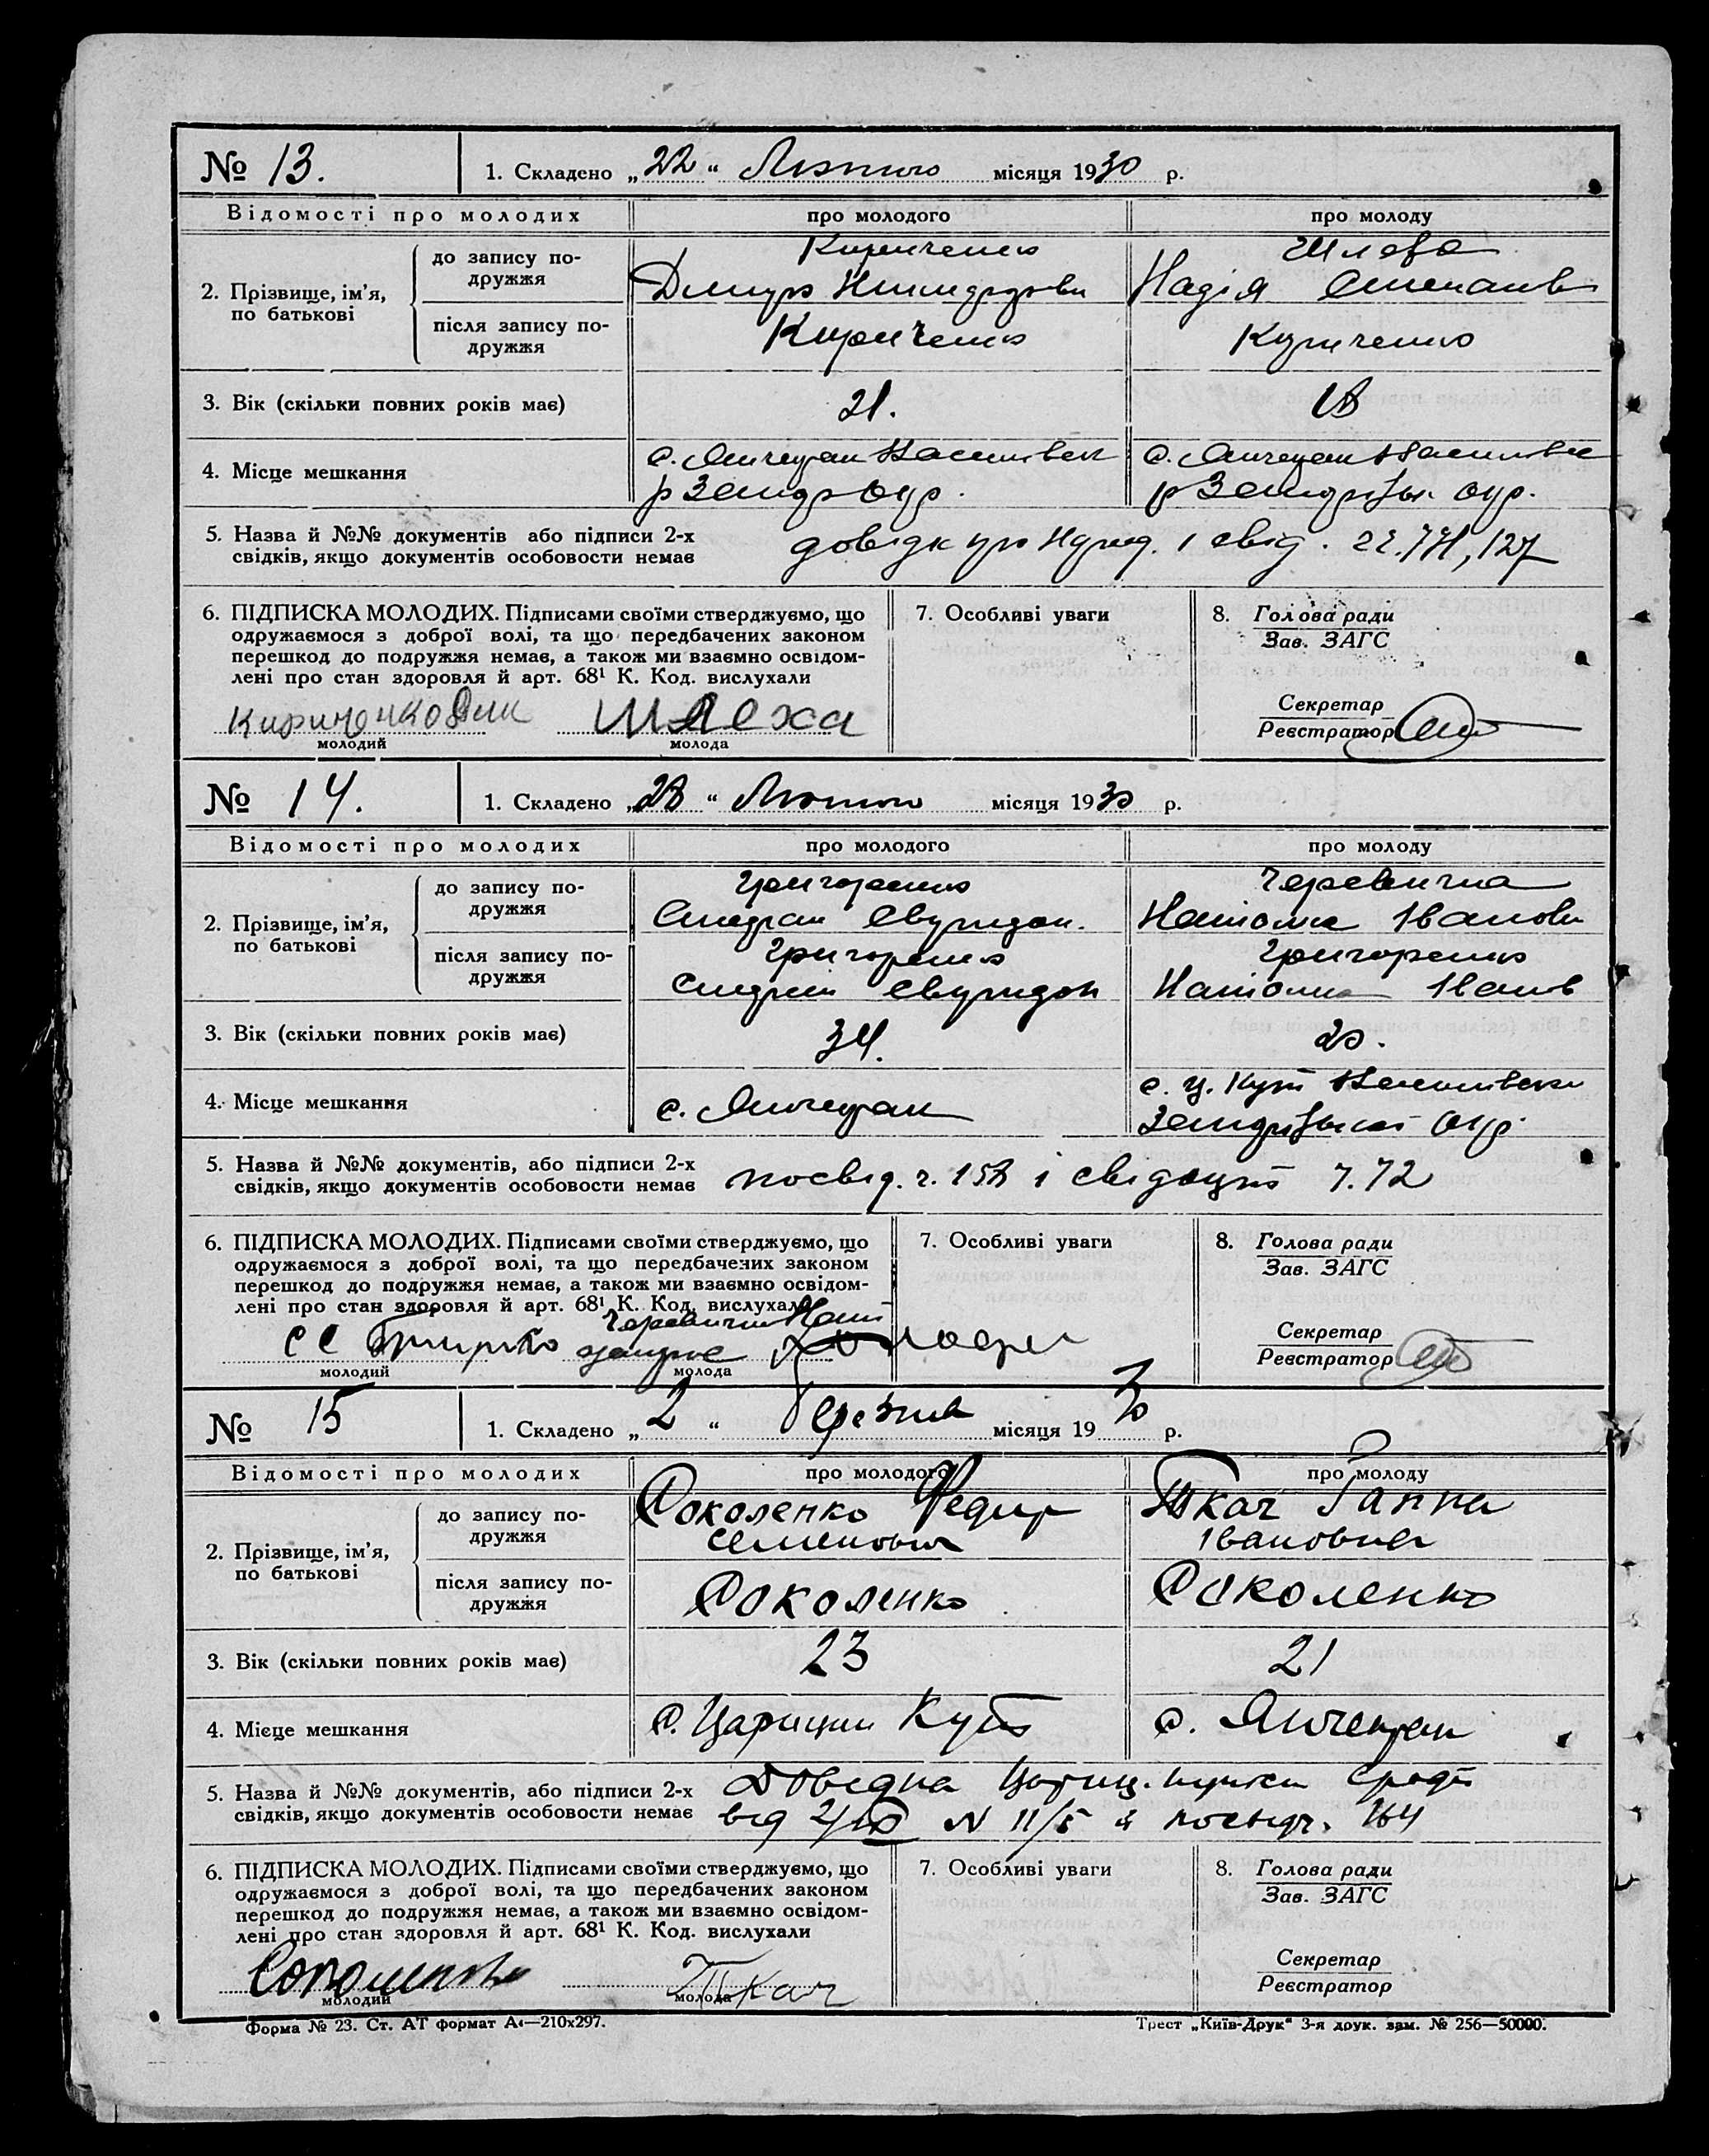 № 13. 1. Складено „22“ Лютого місяця 1930 р.
Відомості про молодих про молодого про молоду
2. Прізвище, ім'я, по батькові
до запису по-
дружжя
Кириченко
Дмитро
Надія Степанів
після запису по-
дружжя
Кириченко Кириченко
3. Вік (скільки повних років має) 21. 18
4. Місце мешкання с. Янчекрак с. Янчекрак
5. Назва й №№ документів або підписи 2-х
свідків, якщо документів особовости немає
довідк про і свід. 127
6. ПІДПИСКА МОЛОДИХ. Підписами своїми стверджуємо, що
одружаємося з доброї волі, та що передбачених законом
перешкод до подружжя немає, а також ми взаємно освідом-
лені про стан здоровля й арт. 68¹ К. Код. вислухали
Кириченко Шлеха
молодий молода
7. Особливі уваги
8. Голова ради
Зав. ЗАГС
Секретар
Реєстратор
№ 14. 1. Складено „28“ Лютого місяця 1930 р.
Відомості про молодих про молодого про молоду
2. Прізвище, ім'я, по батькові
до запису по-
дружжя
Григоренко Черевична
Івановн
після запису по-
дружжя
Григоренко Григоренко
Іванів
3. Вік (скільки повних років має) 34. 20.
4. Місце мешкання с. Янчекрак с. Ц. Кут
5. Назва й №№ документів, або підписи 2-х
свідків, якщо документів особовости немає
посвід. ч. 158 і свідоцтв 7.72
6. ПІДПИСКА МОЛОДИХ. Підписами своїми стверджуємо, що
одружаємося з доброї волі, та що передбачених законом
перешкод до подружжя немає, а також ми взаємно освідом-
лені про стан здоровля й арт. 68¹ К. Код. вислухали
молодий молода
7. Особливі уваги
8. Голова ради
Зав. ЗАГС
Секретар
Реєстратор
№ 15 1. Складено „2“ березня місяця 1930 р.
Відомості про молодих про молодого про молоду
2. Прізвище, ім'я, по батькові
до запису по-
дружжя
Соколенко Федир Ткач Ганна
Семенович Івановна
після запису по-
дружжя
Соколенко Соколенко
3. Вік (скільки повних років має) 23 21
4. Місце мешкання с. Царицин Кут с. Янчекрак
5. Назва й №№ документів, або підписи 2-х
свідків, якщо документів особовости немає
Довідка Цариц.
від N 11/5 й посвідч. 164
6. ПІДПИСКА МОЛОДИХ. Підписами своїми стверджуємо, що
одружаємося з доброї волі, та що передбачених законом
перешкод до подружжя немає, а також ми взаємно освідом-
лені про стан здоровля й арт. 68¹ К. Код. вислухали
Ткач
молодий молода
7. Особливі уваги
8. Голова ради
Зав. ЗАГС
Секретар
Реєстратор
Форма № 23. Ст. АТ формат А₄—210x297. Трест „Київ-Друк“ 3-я друк. зам. № 256—50000.